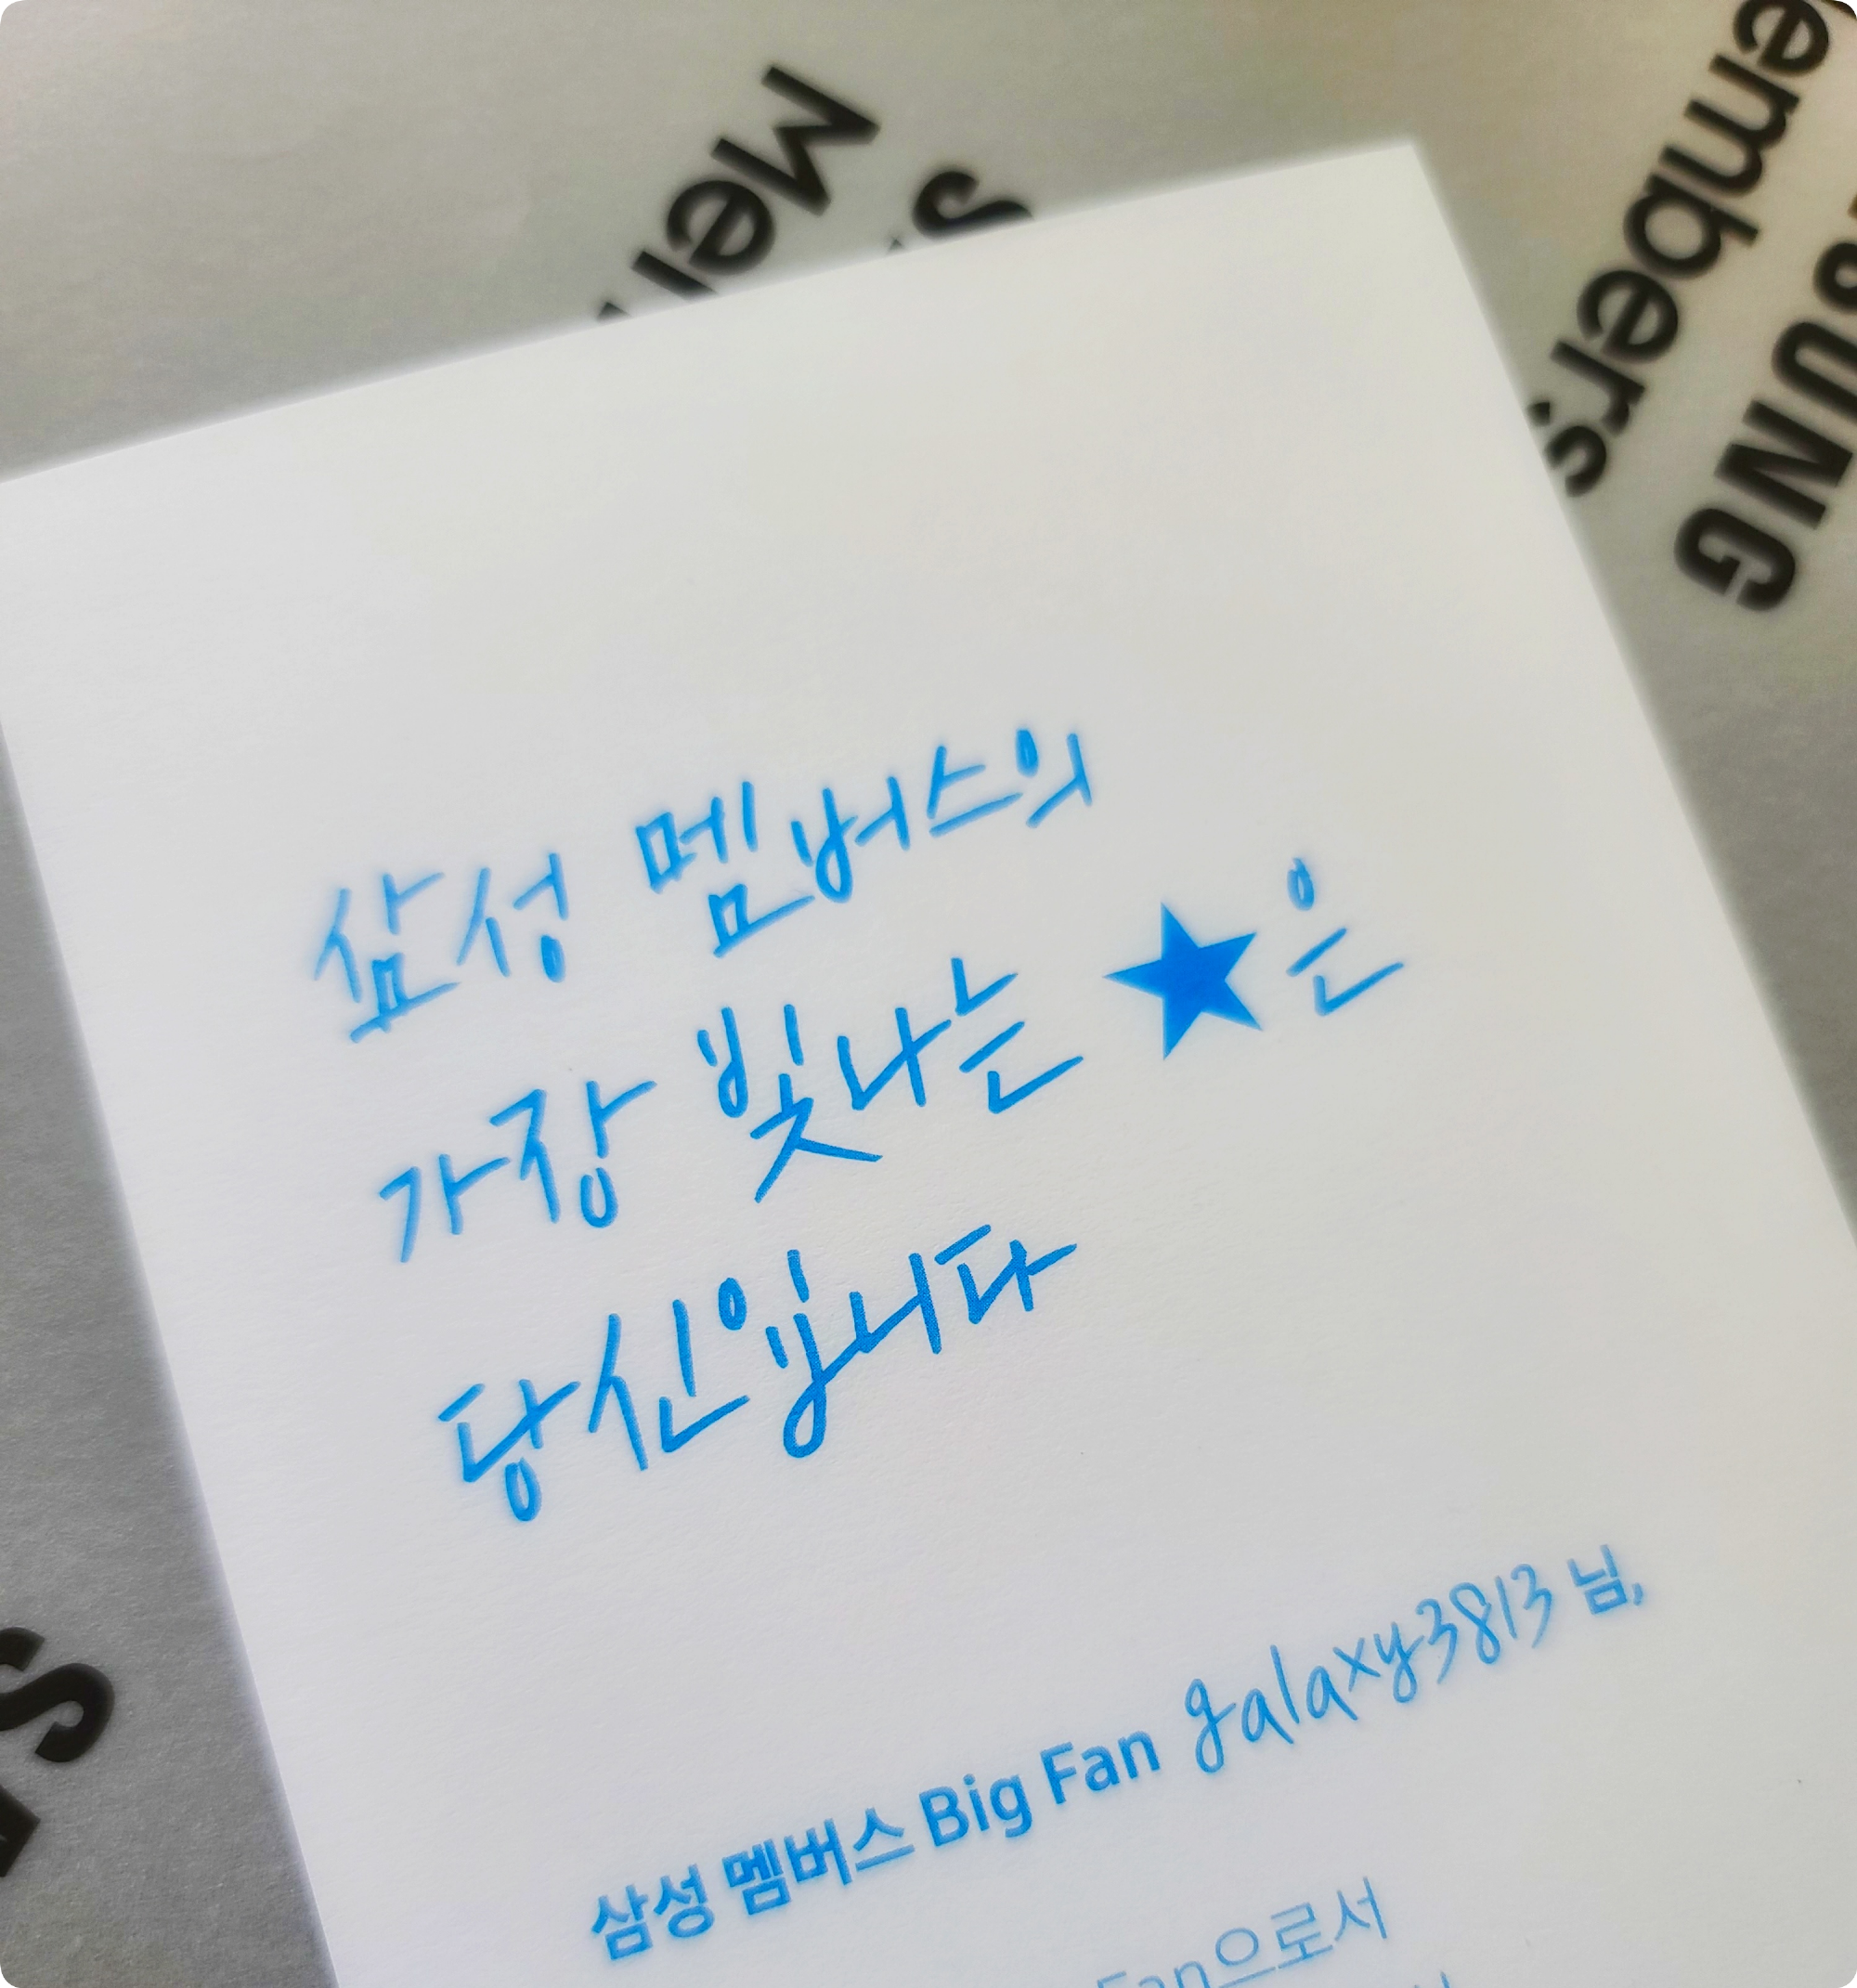 embers
SUNG
삼성 멤버스의
가장 빛나는 ★은
당신입니다
삼성 멤버스 Big Fan galaxy3813 님,
Fan으로서